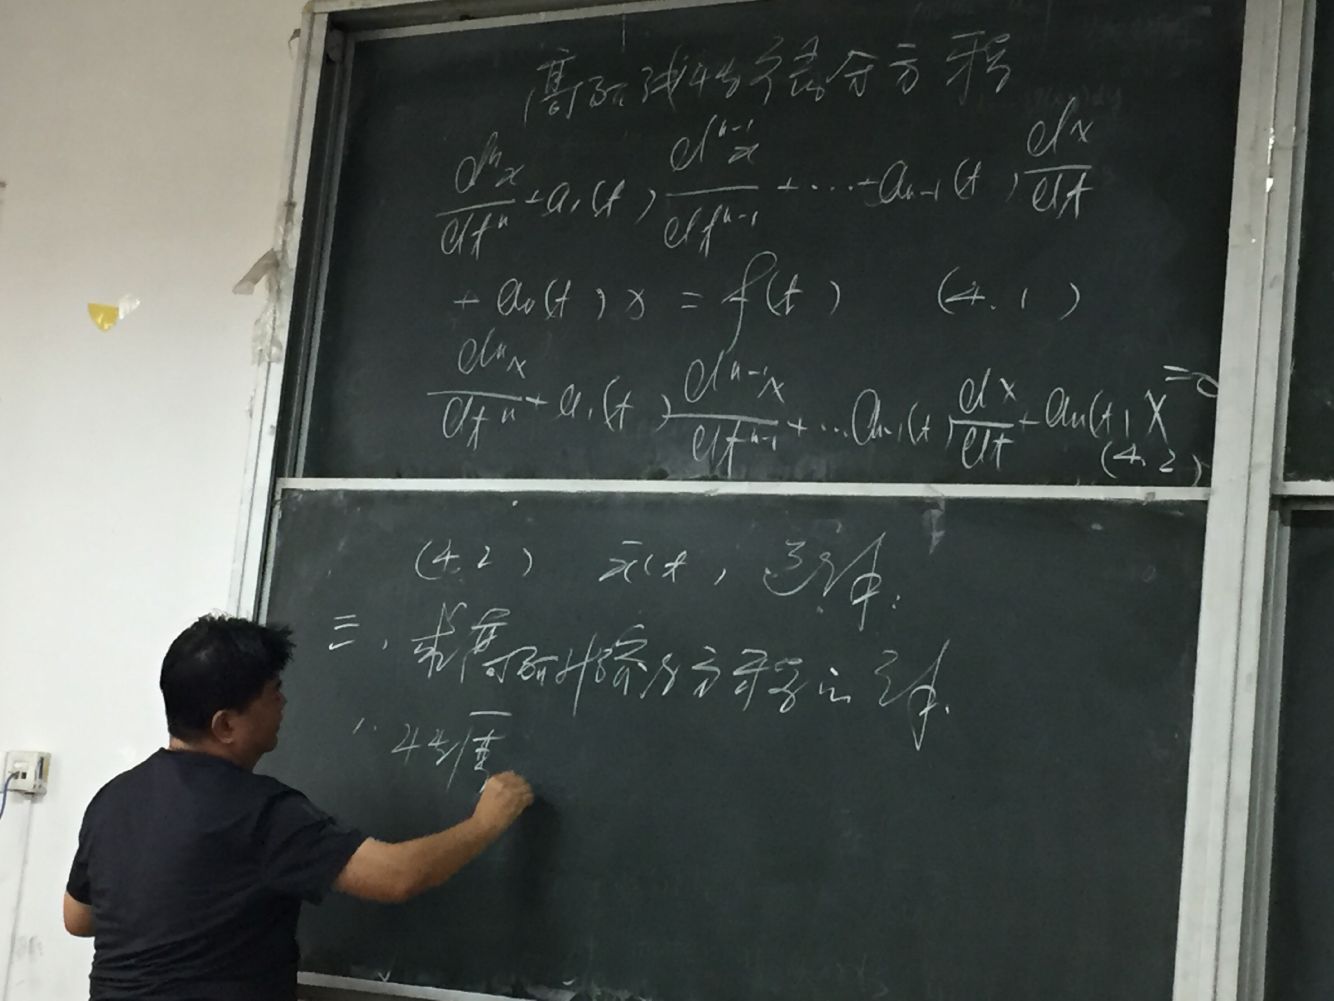 高阶线性微分方程
dⁿx/dtⁿ + a₁(t) dⁿ⁻¹x/dtⁿ⁻¹ + ... + aₙ₋₁(t) dx/dt
+ aₙ(t) x = f(t) (4.1)
dⁿx/dtⁿ + a₁(t) dⁿ⁻¹x/dtⁿ⁻¹ + ... aₙ₋₁(t) dx/dt + aₙ(t) x = 0
(4.2)
(4.2)
三、求高阶 方程的
1. 特值